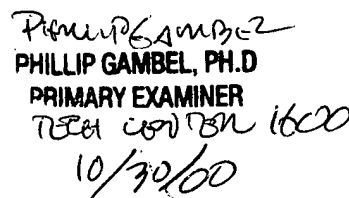 PHILLIP GAMBEL
PHILLIP GAMBEL, PH.D
PRIMARY EXAMINER
TECH CENTER 1600
10/30/00